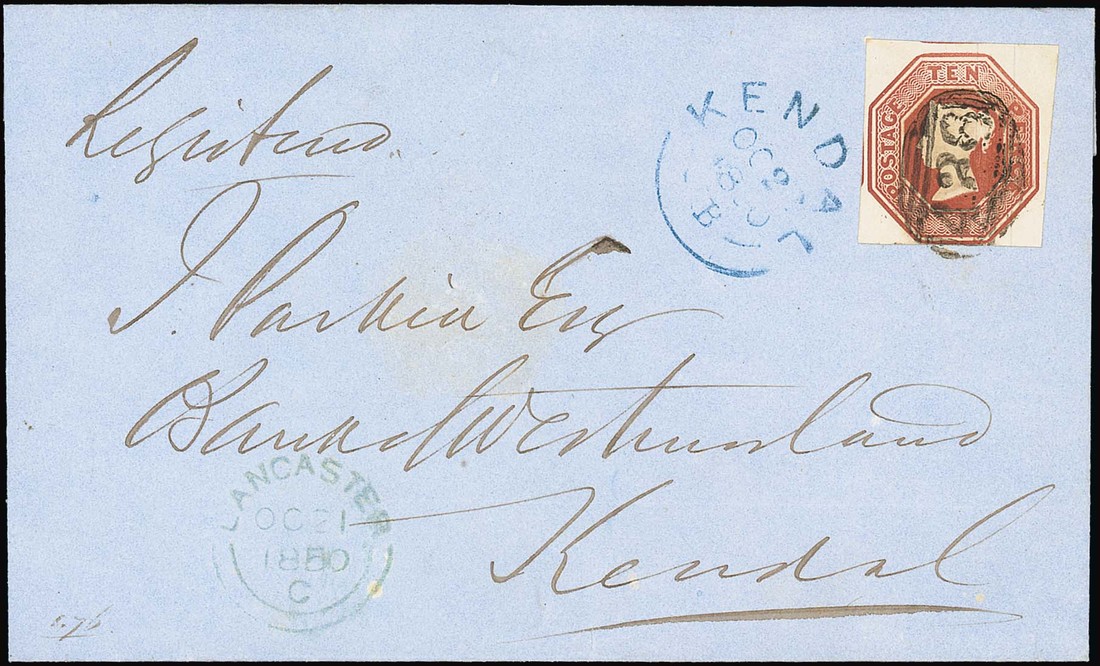 Registered
KENDAL
OC 21
1850
B
POSTAGE TEN PENCE
J. Parkin Esq
Bank of Westmorland
Kendal
LANCASTER
OC 21
1850
C